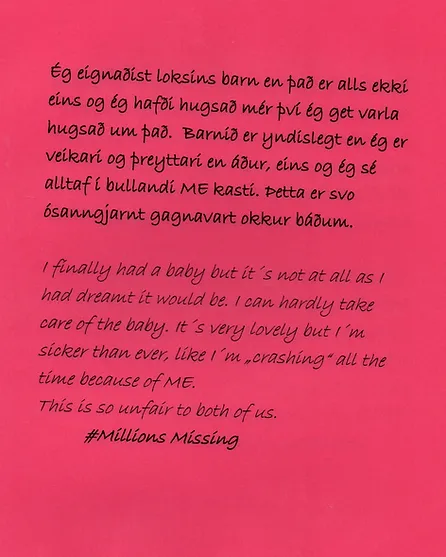 Ég eignaðist loksins barn en það er alls ekki
eins og ég hafði hugsað mér því ég get varla
hugsað um það. Barnið er yndislegt en ég er
veikari og þreyttari en áður, eins og ég sé
alltaf í bullandi ME kasti. Þetta er svo
ósanngjarnt gagnavart okkur báðum.
I finally had a baby but it´s not at all as I
had dreamt it would be. I can hardly take
care of the baby. It´s very lovely but I´m
sicker than ever, like I´m „crashing“ all the
time because of ME.
This is so unfair to both of us.
#Millions Missing